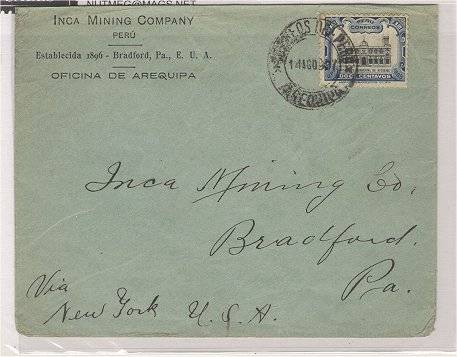 NUTMEG@MAGS.NET
INCA MINING COMPANY
PERÚ
Establecida 1896 - Bradford, Pa., E. U. A.
OFICINA DE AREQUIPA
PERU
CORREOS
DOCE CENTAVOS
AREQUIPA
Inca Mining Co,
Bradford.
Pa.
Via
New York U. S. A.